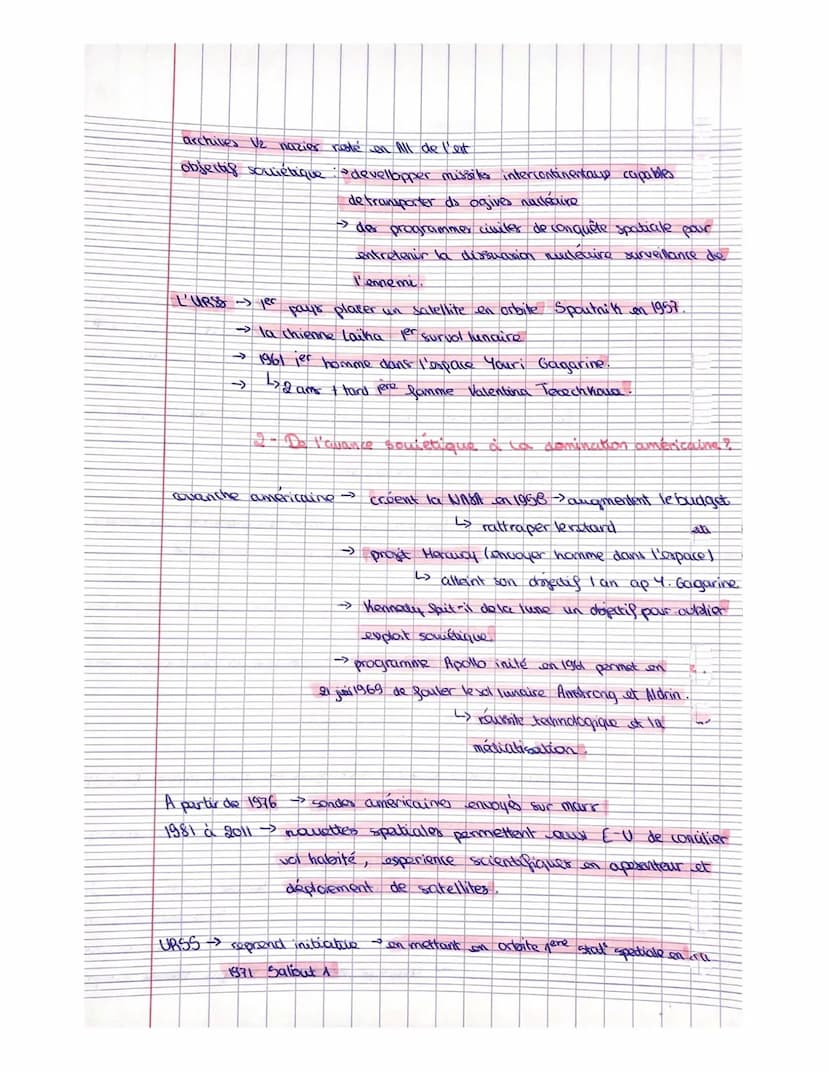 archives V2 nazies resté en All de l'est
objectif soviétique : → devellopper missiles intercontinentaux capables
de transporter ds ogives nucléaire
→ des programmes civiles de conquête spatiale pour
entretenir la dissuasion nucléaire surveillance de
l'ennemi.
L'URSS → 1er pays placer un satellite en orbite Spoutnik en 1957.
→ la chienne Laïka 1er survol lunaire
→ 1961 1er homme dans l'espace Youri Gagarine.
→ ↳ 2 ans + tard 1ère femme Valentina Terechkova.
2 - De l'avance soviétique à la domination américaine ?
revanche américaine → créent la NASA en 1958 → augmentent le budget
↳ rattraper le retard
→ projet Mercury (envoyer homme dans l'espace)
↳ atteint son objectif 1 an ap Y. Gagarine
→ Kennedy fait-il de la lune un objectif pour oublier
exploit soviétique.
→ programme Apollo initié en 1961 permet en
21 1969 de fouler le sol lunaire Amstrong et Aldrin.
↳ réussite technologique et la
médiatisation.
A partir de 1976 → sondes américaines envoyés sur mars
1981 à 2011 → navettes spatiales permettent aussi E-U de concilier
vol habité, experience scientifiques en apesenteur et
déploiement de satellites.
URSS → reprend initiative → en mettant en orbite 1ère stat° spatiale en
1971 Saliout 1